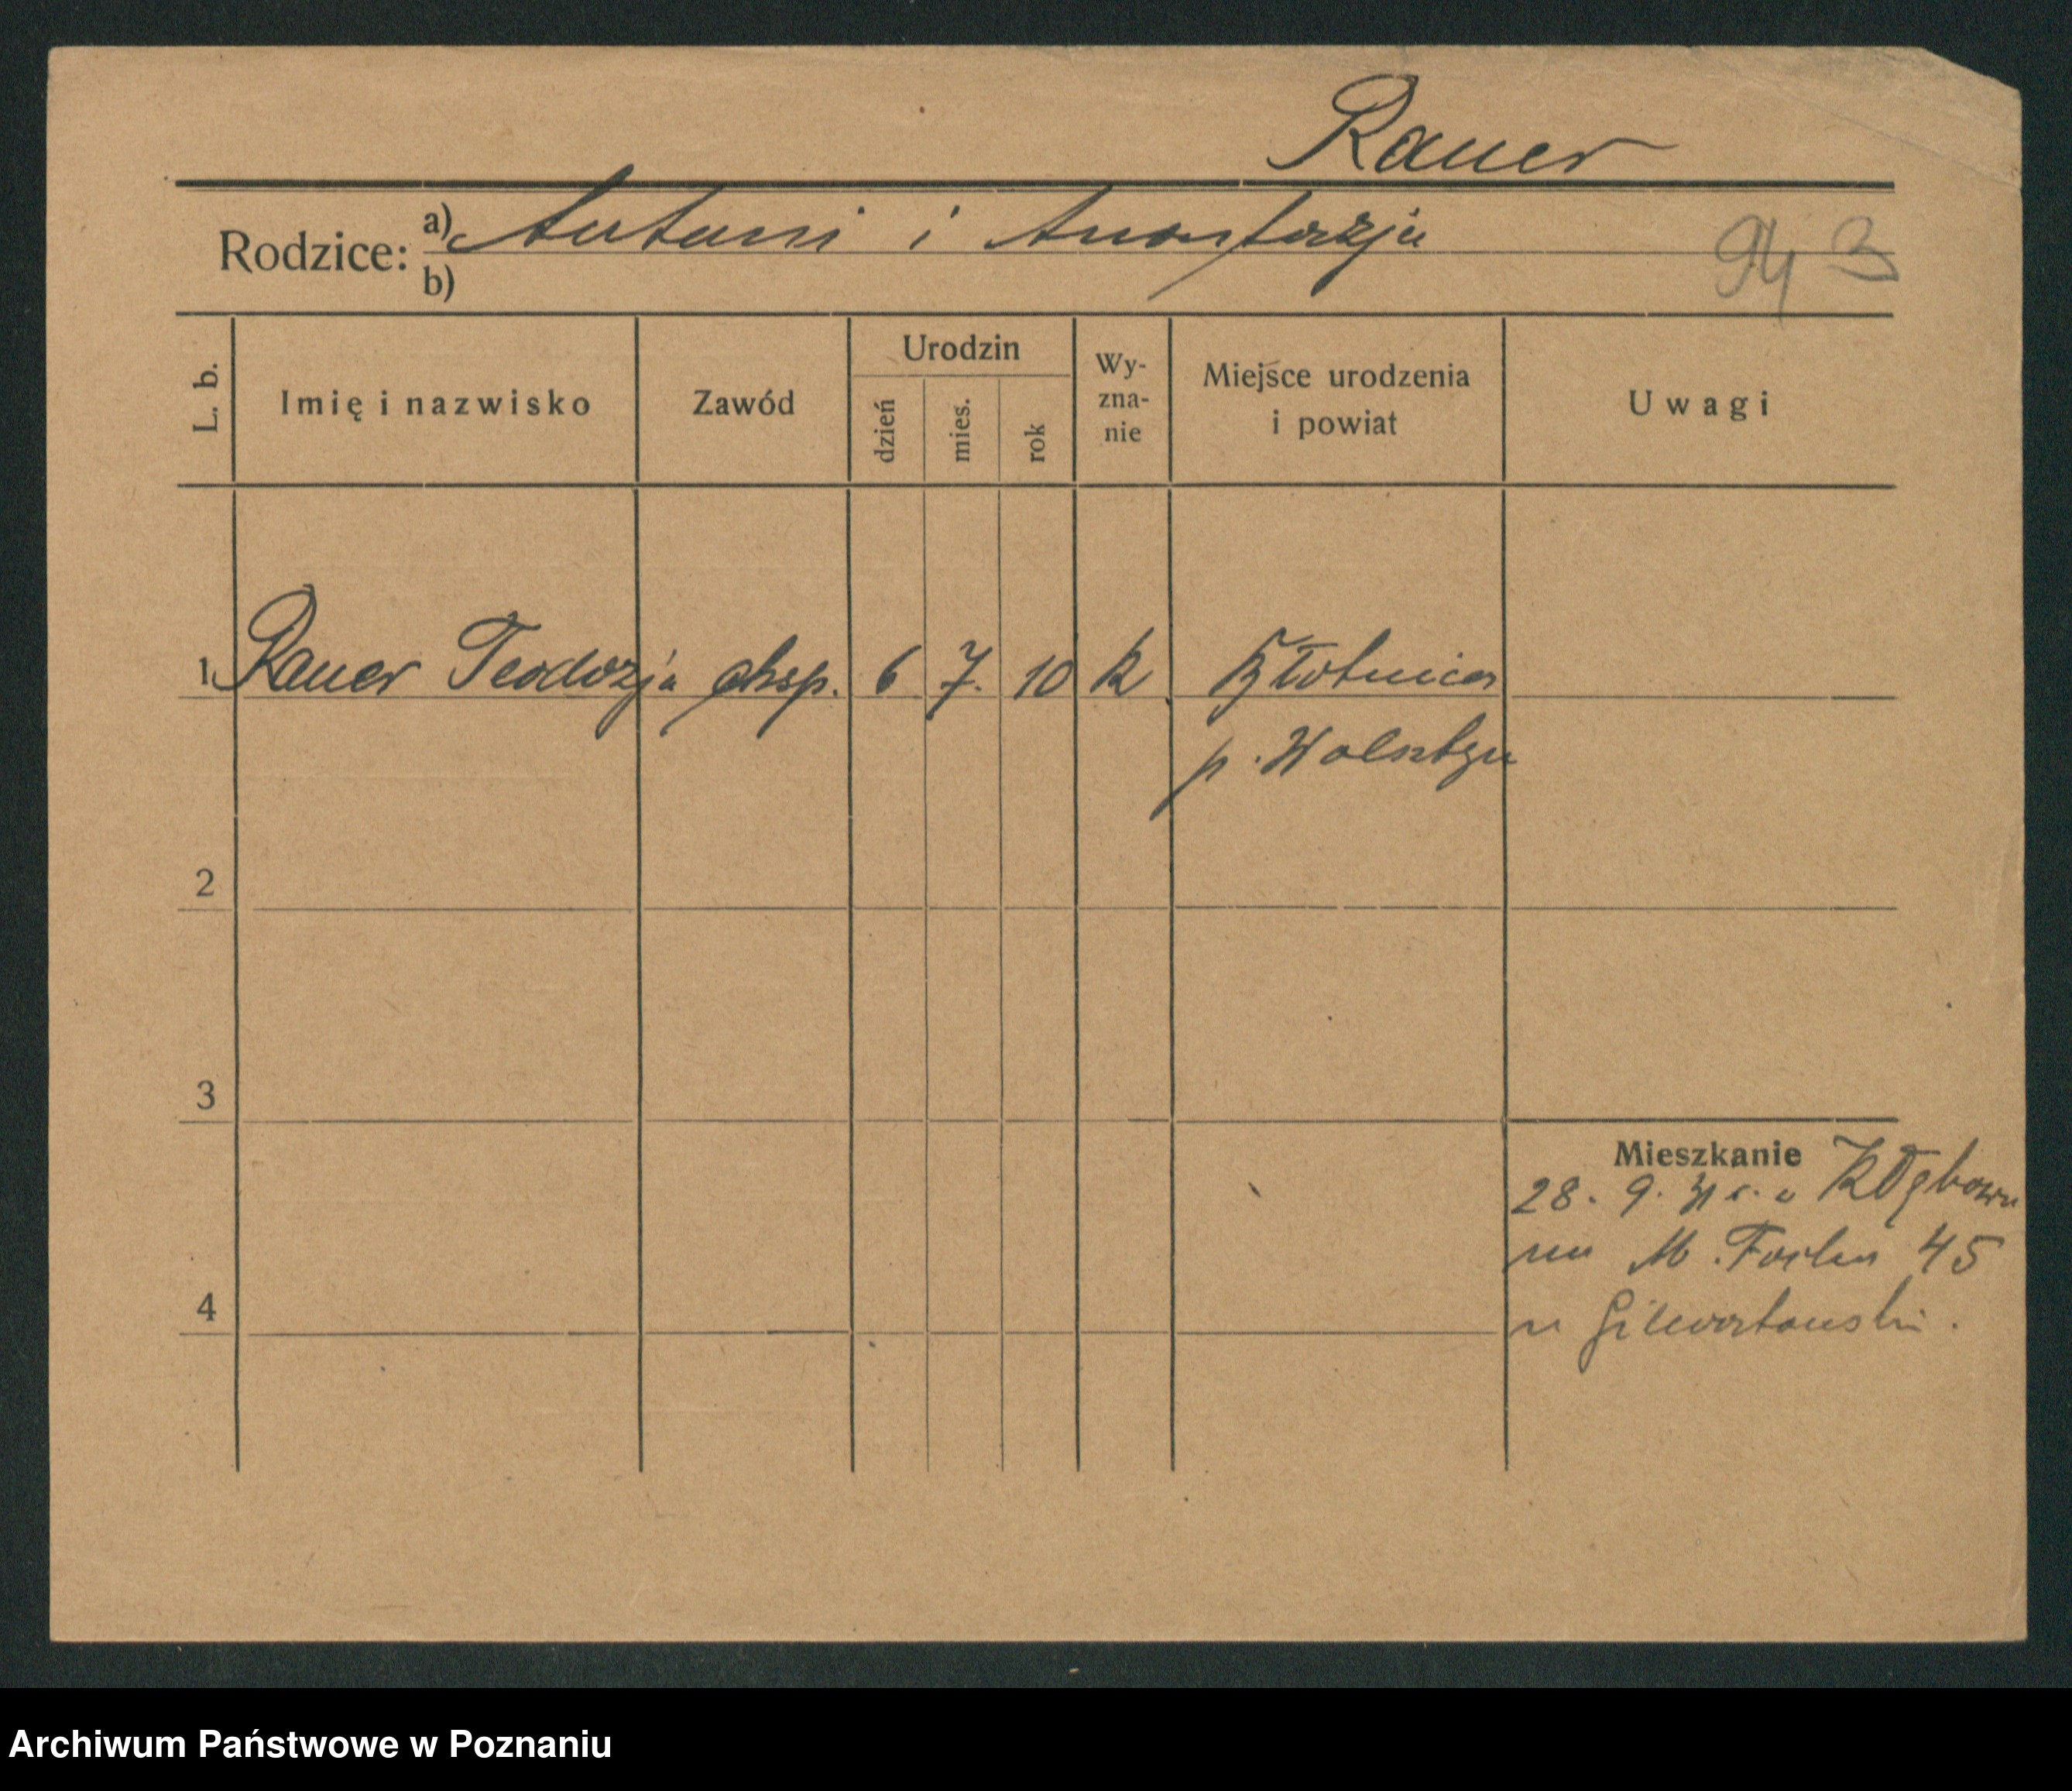 Rauer
Rodzice: a) Antoni i Anastazja
b)
943
L. b. Imię i nazwisko Zawód Urodzin dzień mies. rok Wy-zna-nie Miejsce urodzenia i powiat Uwagi
1 Rauer Teodozja eksp. 6 7. 10 k Błotnica
p. Wolsztyn
2
3
Mieszkanie
28. 9. z
na M. Focha 45
4
Archiwum Państwowe w Poznaniu